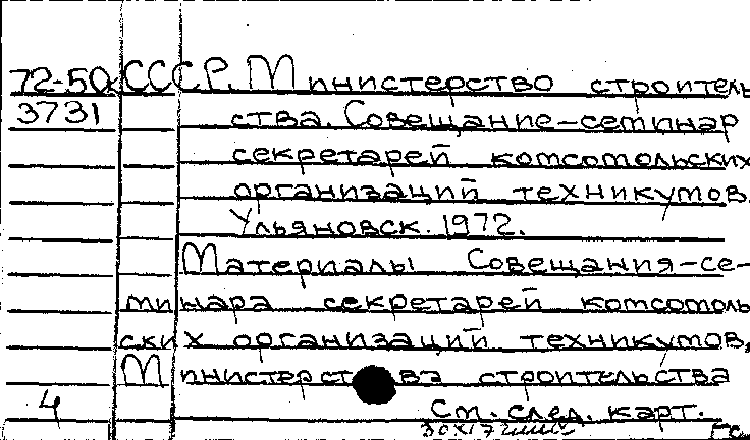 72-50 СССР. Министерство строитель
3731 ства. Совещание-семинар
секретарей комсомольских
организаций техникумов.
Ульяновск. 1972.
Материалы Совещания-се-
минара секретарей комсомоль
ских организаций техникумов,
Министерства строительства
4 См. след. карт.